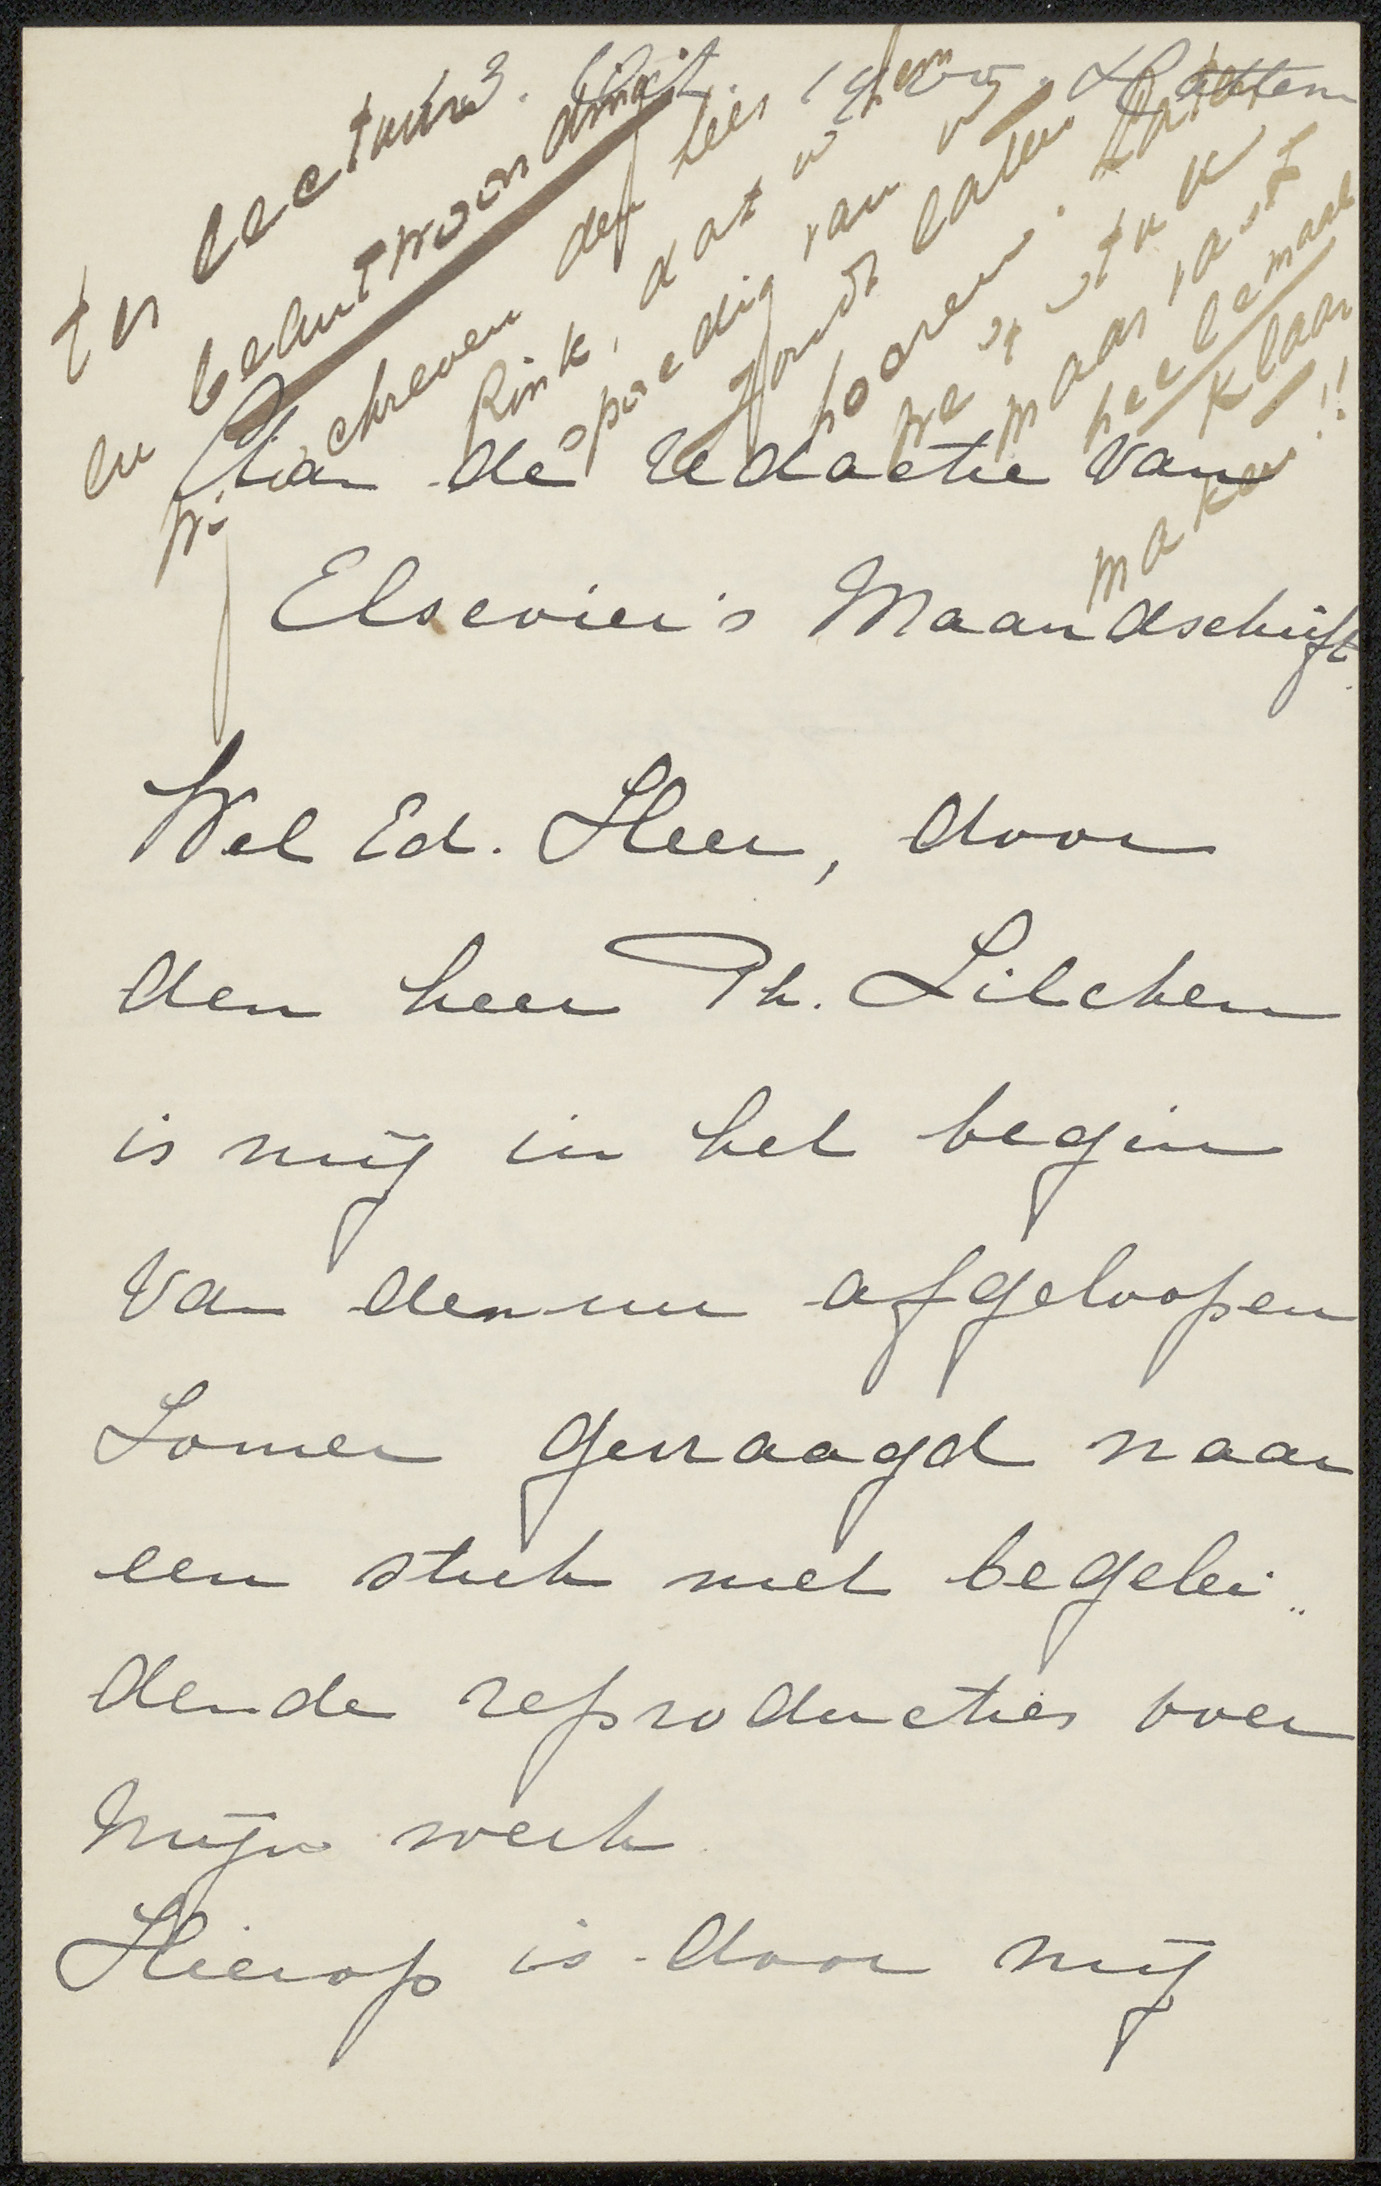 3. Oct. 1900. Hattem
ter lectuur
en beantwoording
wij schreven den heer
Rink, dat u hem
spoedig van u
zoudt laten
hooren. Laten
we 't stuk
maar vast
heelemaal
klaar
maken!!
Aan de redactie van
Elsevier's Maandschrift.
Wel Ed. Heer, door
den heer Ph. Zilcken
is mij in het begin
van den nu afgeloopen
Zomer gevraagd naar
een stuk met begelei„
dende reproducties over
mijn werk
Hierop is door mij